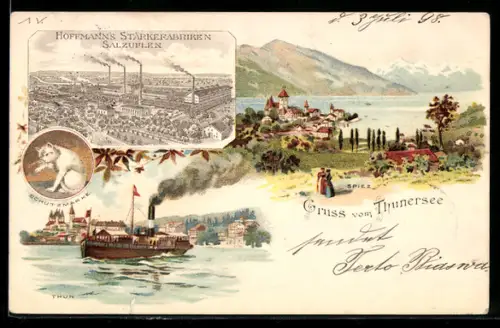 d 3 Juli 98.
HOFFMANN'S STÄRKEFABRIKEN
SALZUFLEN
SCHUTZMARKE
SPIEZ
Gruss vom Thunersee
sendet
THUN